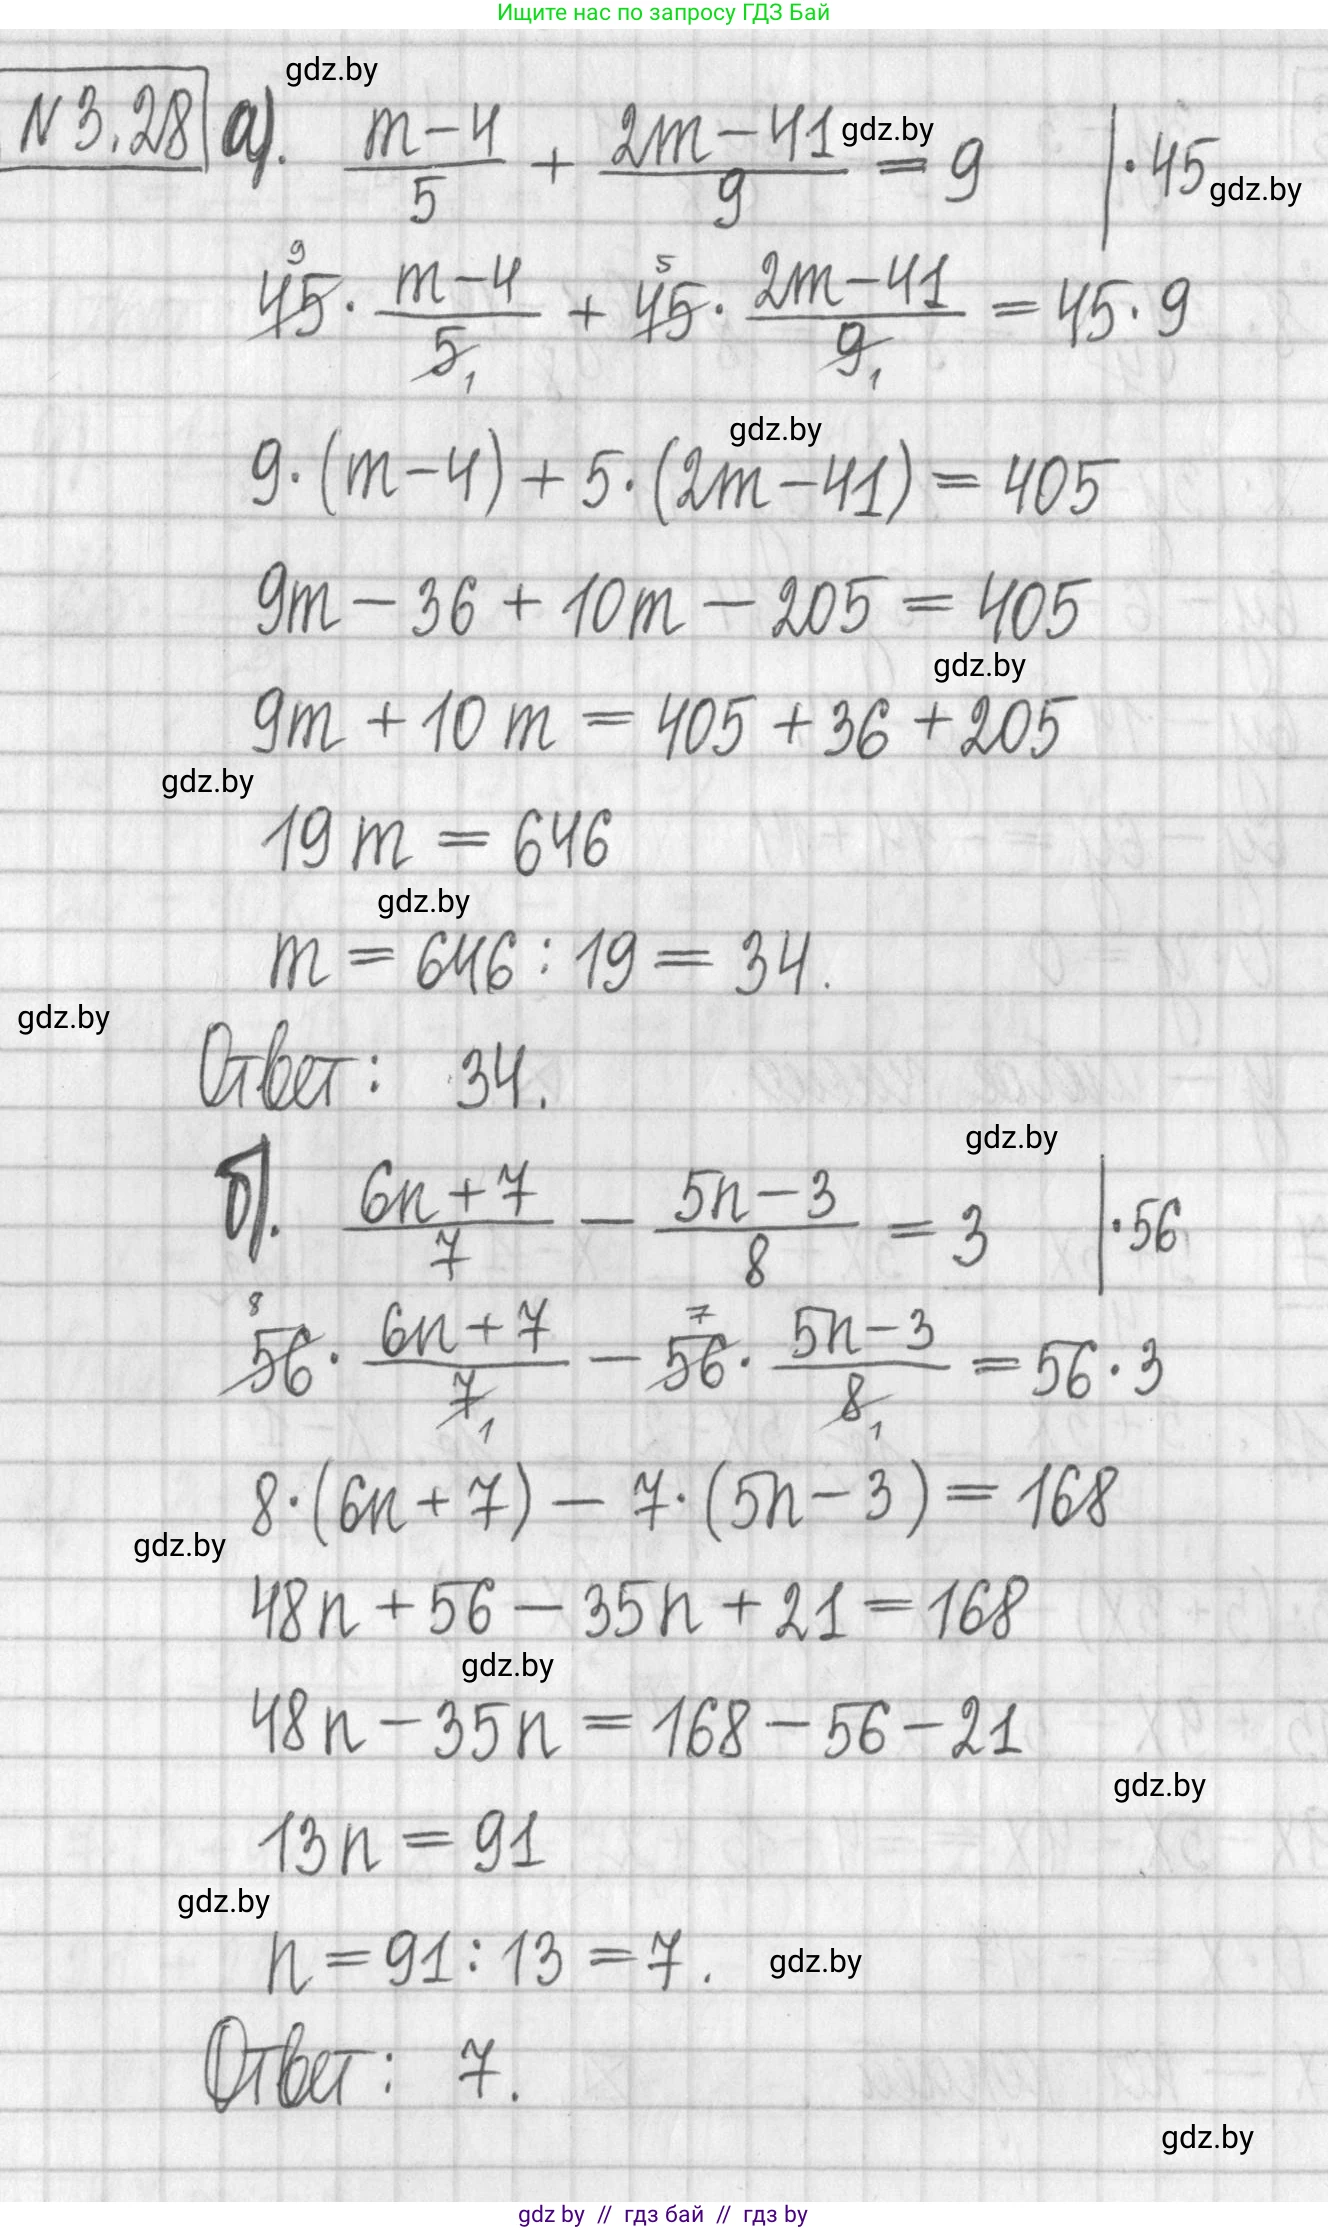 Ищите нас по запросу ГДЗ Бай
gdz.by
N 3.28 а). (m-4)/5 + (2m-41)/9 = 9 | ·45
gdz.by
gdz.by
45⁹ · (m-4)/5₁ + 45⁵ · (2m-41)/9₁ = 45·9
gdz.by
9·(m-4)+5·(2m-41)=405
9m-36+10m-205=405
gdz.by
9m+10m=405+36+205
gdz.by
19m=646
gdz.by
m=646:19=34.
gdz.by
Ответ: 34.
gdz.by
б). (6n+7)/7 - (5n-3)/8 = 3 | ·56
56⁸ · (6n+7)/7₁ - 56⁷ · (5n-3)/8₁ = 56·3
8·(6n+7)-7·(5n-3)=168
gdz.by
48n+56-35n+21=168
gdz.by
48n-35n=168-56-21
gdz.by
13n=91
gdz.by
n=91:13=7.
gdz.by
Ответ: 7.
gdz.by
gdz by // гдз бай // gdz.by